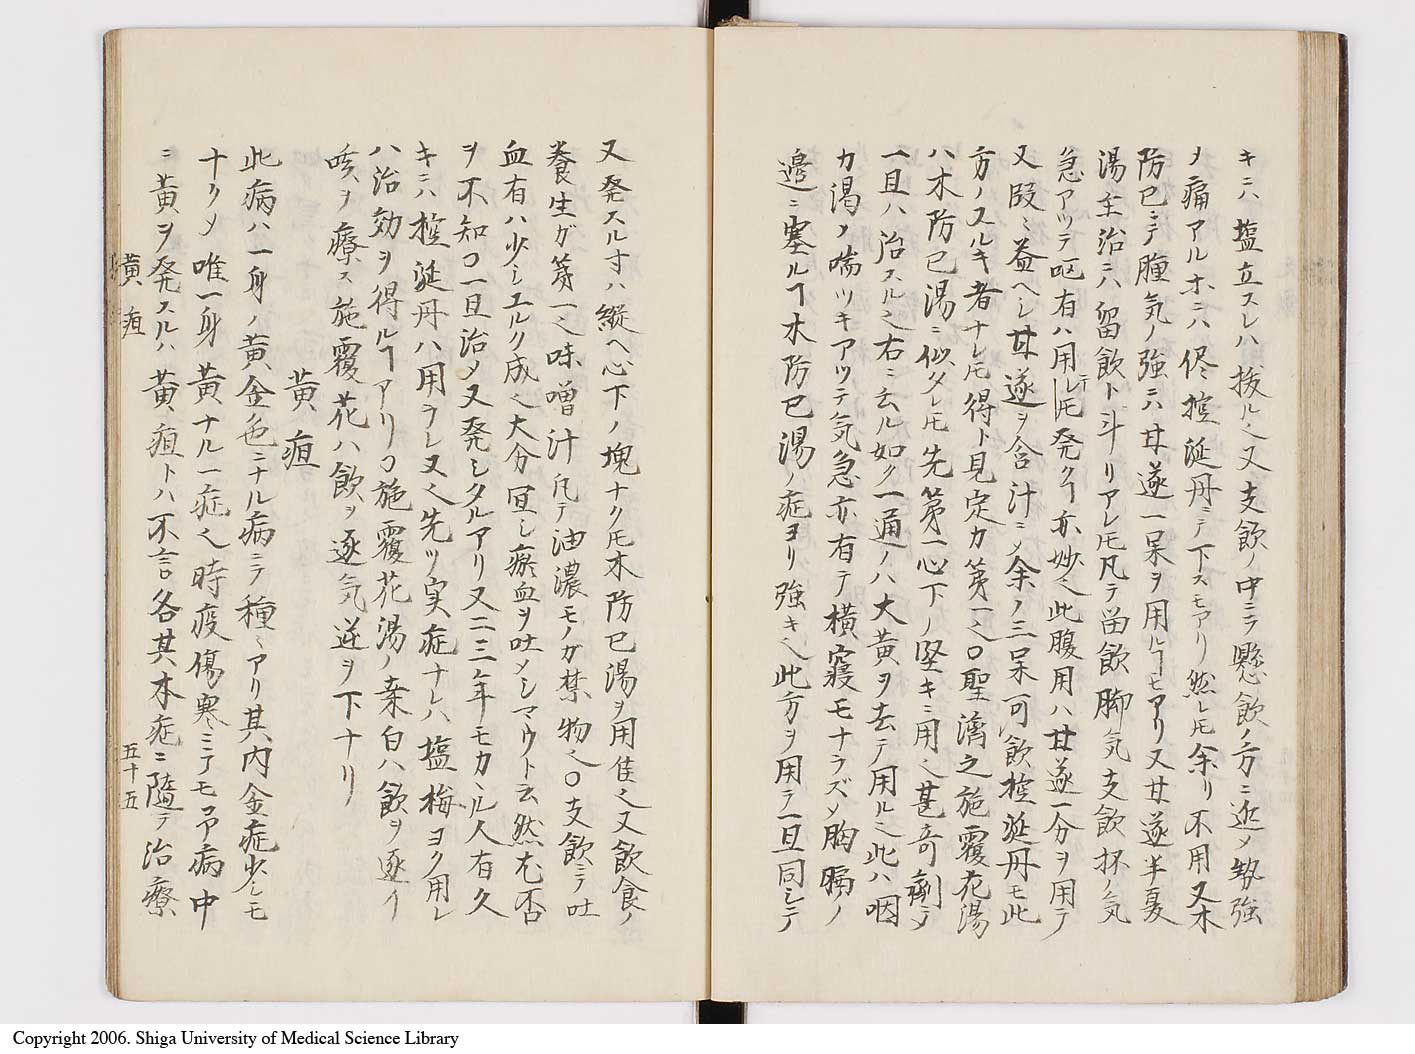 キニハ塩立スレハ拔ル也又支飲ノ中ニラ懸飲ノ方ニ近メ勢強
ノ痛アルホニハ侭控涎丹ニテ下スモアリ然レ𪜈余リ不用又木
防已ニテ腫気ノ強ニハ甘遂一呆ヲ用ルヿモアリ又甘遂半夏
湯主治ニハ留飲ト斗リアレ𪜈凡テ畄飲脚気支飲抔ノ気
急アツテ呕有ハ用テレ𪜈発クヿ亦妙也此腹用ハ甘遂一分ヲ用テ
又段〻益ヘシ甘遂ヲ含汁ニメ余ノ三呆可飲控涎丹モ此
方ノスルキ者ナレ𪜈得ト見定カ第一也〇聖済之施覆花湯
ハ木防已湯ニ似タレ𪜈先第一心下ノ堅キニ用也甚奇劑ニテ
一旦ハ治スル也右ニ云ル如ク一通ノハ大黄ヲ去テ用ル也此ハ咽
カ渇ノ喘ツキアツテ気急亦有テ横寝モナラズメ胸膈ノ
邉ニ塞ルヿ木防已湯ノ症ヨリ強キ也此方ヲ用テ一旦同シニテ
又発スル寸ハ縦ヘ心下ノ塊ナク𪜈木防已湯ヲ用佳也又飲食ノ
養生ガ第一也味噌汁凡テ油濃モノガ禁物也〇支飲ニテ吐
血有ハ少シエルク成也大分冝シ瘀血ヲ吐メシマウト云然尤否
ヲ不知〇一旦治メ又発シタルアリ又二三年モカヽル人有久
キニハ控涎丹ハ用ヲレ又也先ツ実症ナレハ塩梅ヨク用レ
ハ治効ヲ得ルヿアリ〇施覆花湯ノ桒白ハ飲ヲ逐イ
咳ヲ療ス施覆花ハ飲ヲ逐気逆ヲ下ナリ
黄疸
此病ハ一身ノ黄金色ニナル病ニテ種〻アリ其内金症少シモ
ナクメ唯一身黄ナル一症也時疫傷寒ニテモヲ病中
ニ黄ヲ発スルハ黄疸トハ不言各其本症ニ隨テ治療
黄疸 五十五
Copyright 2006. Shiga University of Medical Science Library